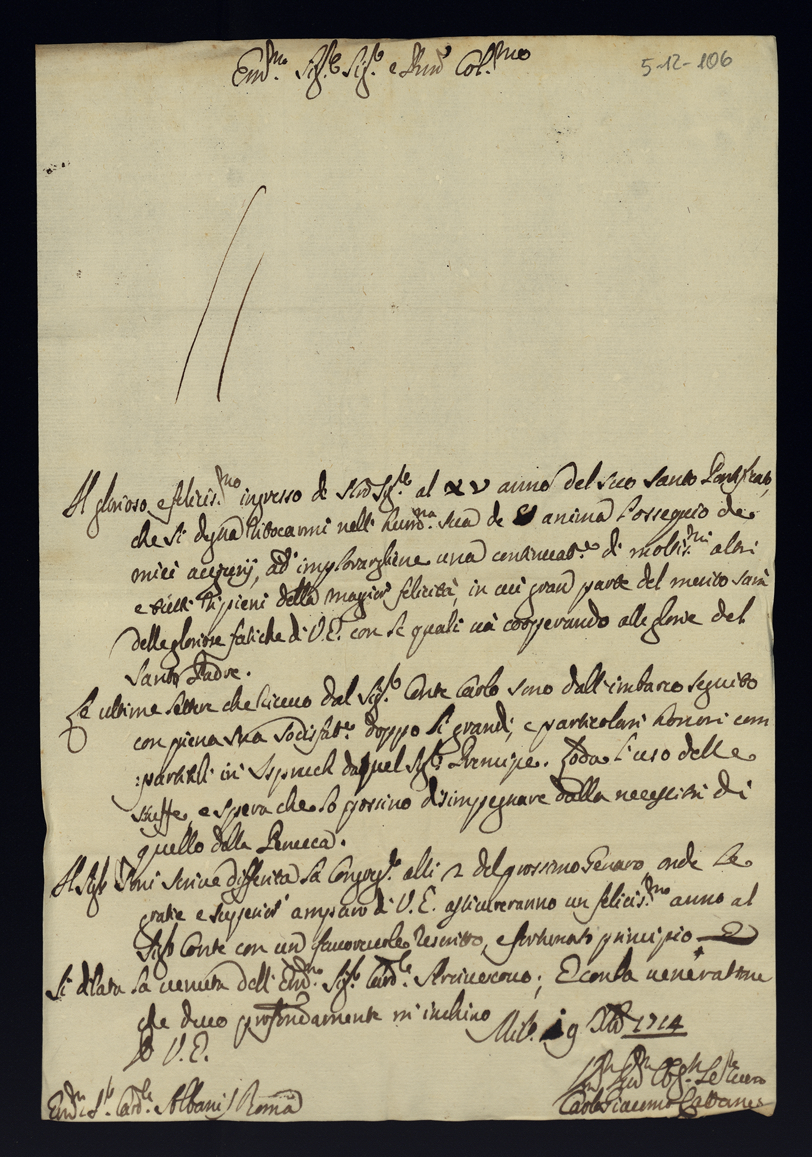 5-12-106
Em.mo Sig.r Sig.r e P.rone Col.mo
Al glorioso, e felicis.mo ingresso di N.ro Sig.re al XV anno del suo Santo Pontificato,
che si degna
anima l'ossequio de
miei auguri, ad implorargliene una continuat.e di moltis.mi altri
e tutti ripieni della magior felicità, in cui gran parte del merito sarà
delle gloriose fatiche di V.E. con le quali và cooperando alle glorie del
Santo Padre.
Le ultime lettere che ricevo dal Sig.r Conte Carlo sono dall'imbarco seguito
con piena sua sodisfat.e doppo li grandi, e particolari honori com
:partitili in Ispruch da quel Sig.r Prencipe. Loda l'uso delle
stuffe, e spera che lo possino disimpegnare dalla necessità di
quello della Peneca.
Il Sig.r scrive differita la Congreg.e alli 2 del prossimo Genaro, onde le
gratie e superior' amparo di V.E. assicureranno un felicis.mo anno al
Sig.r Conte con un favorevole Rescritto, e fortunato principio
Si dilata la venuta dell'Em.mo Sig.r Card.le Arcivescovo; E con la veneratione
che devo profondamente m'inchino
Mil.o 19 Xbre 1714
D V.E.
Em.mo S.r Card.le Albani Roma
Carlo Giacomo